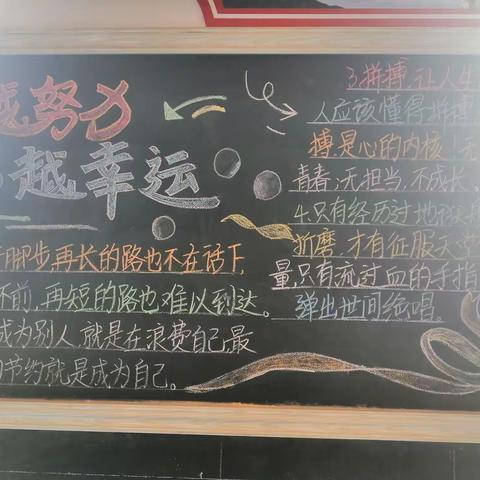 越努力
越幸运
脚步,再长的路也不在话下,
不前,再短的路也难以到达。
成为别人,就是在浪费自己,最
节约就是成为自己。
3.拼搏,让人生
人应该懂得拼搏
搏是心的内核!无
青春;无担当,不成长。
4.只有经历过地狱
折磨,才有征服天堂
量,只有流过血的手指
弹出世间绝唱。